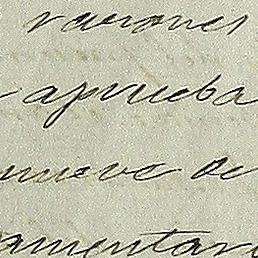 varones
aprueba
nueve de
amentar